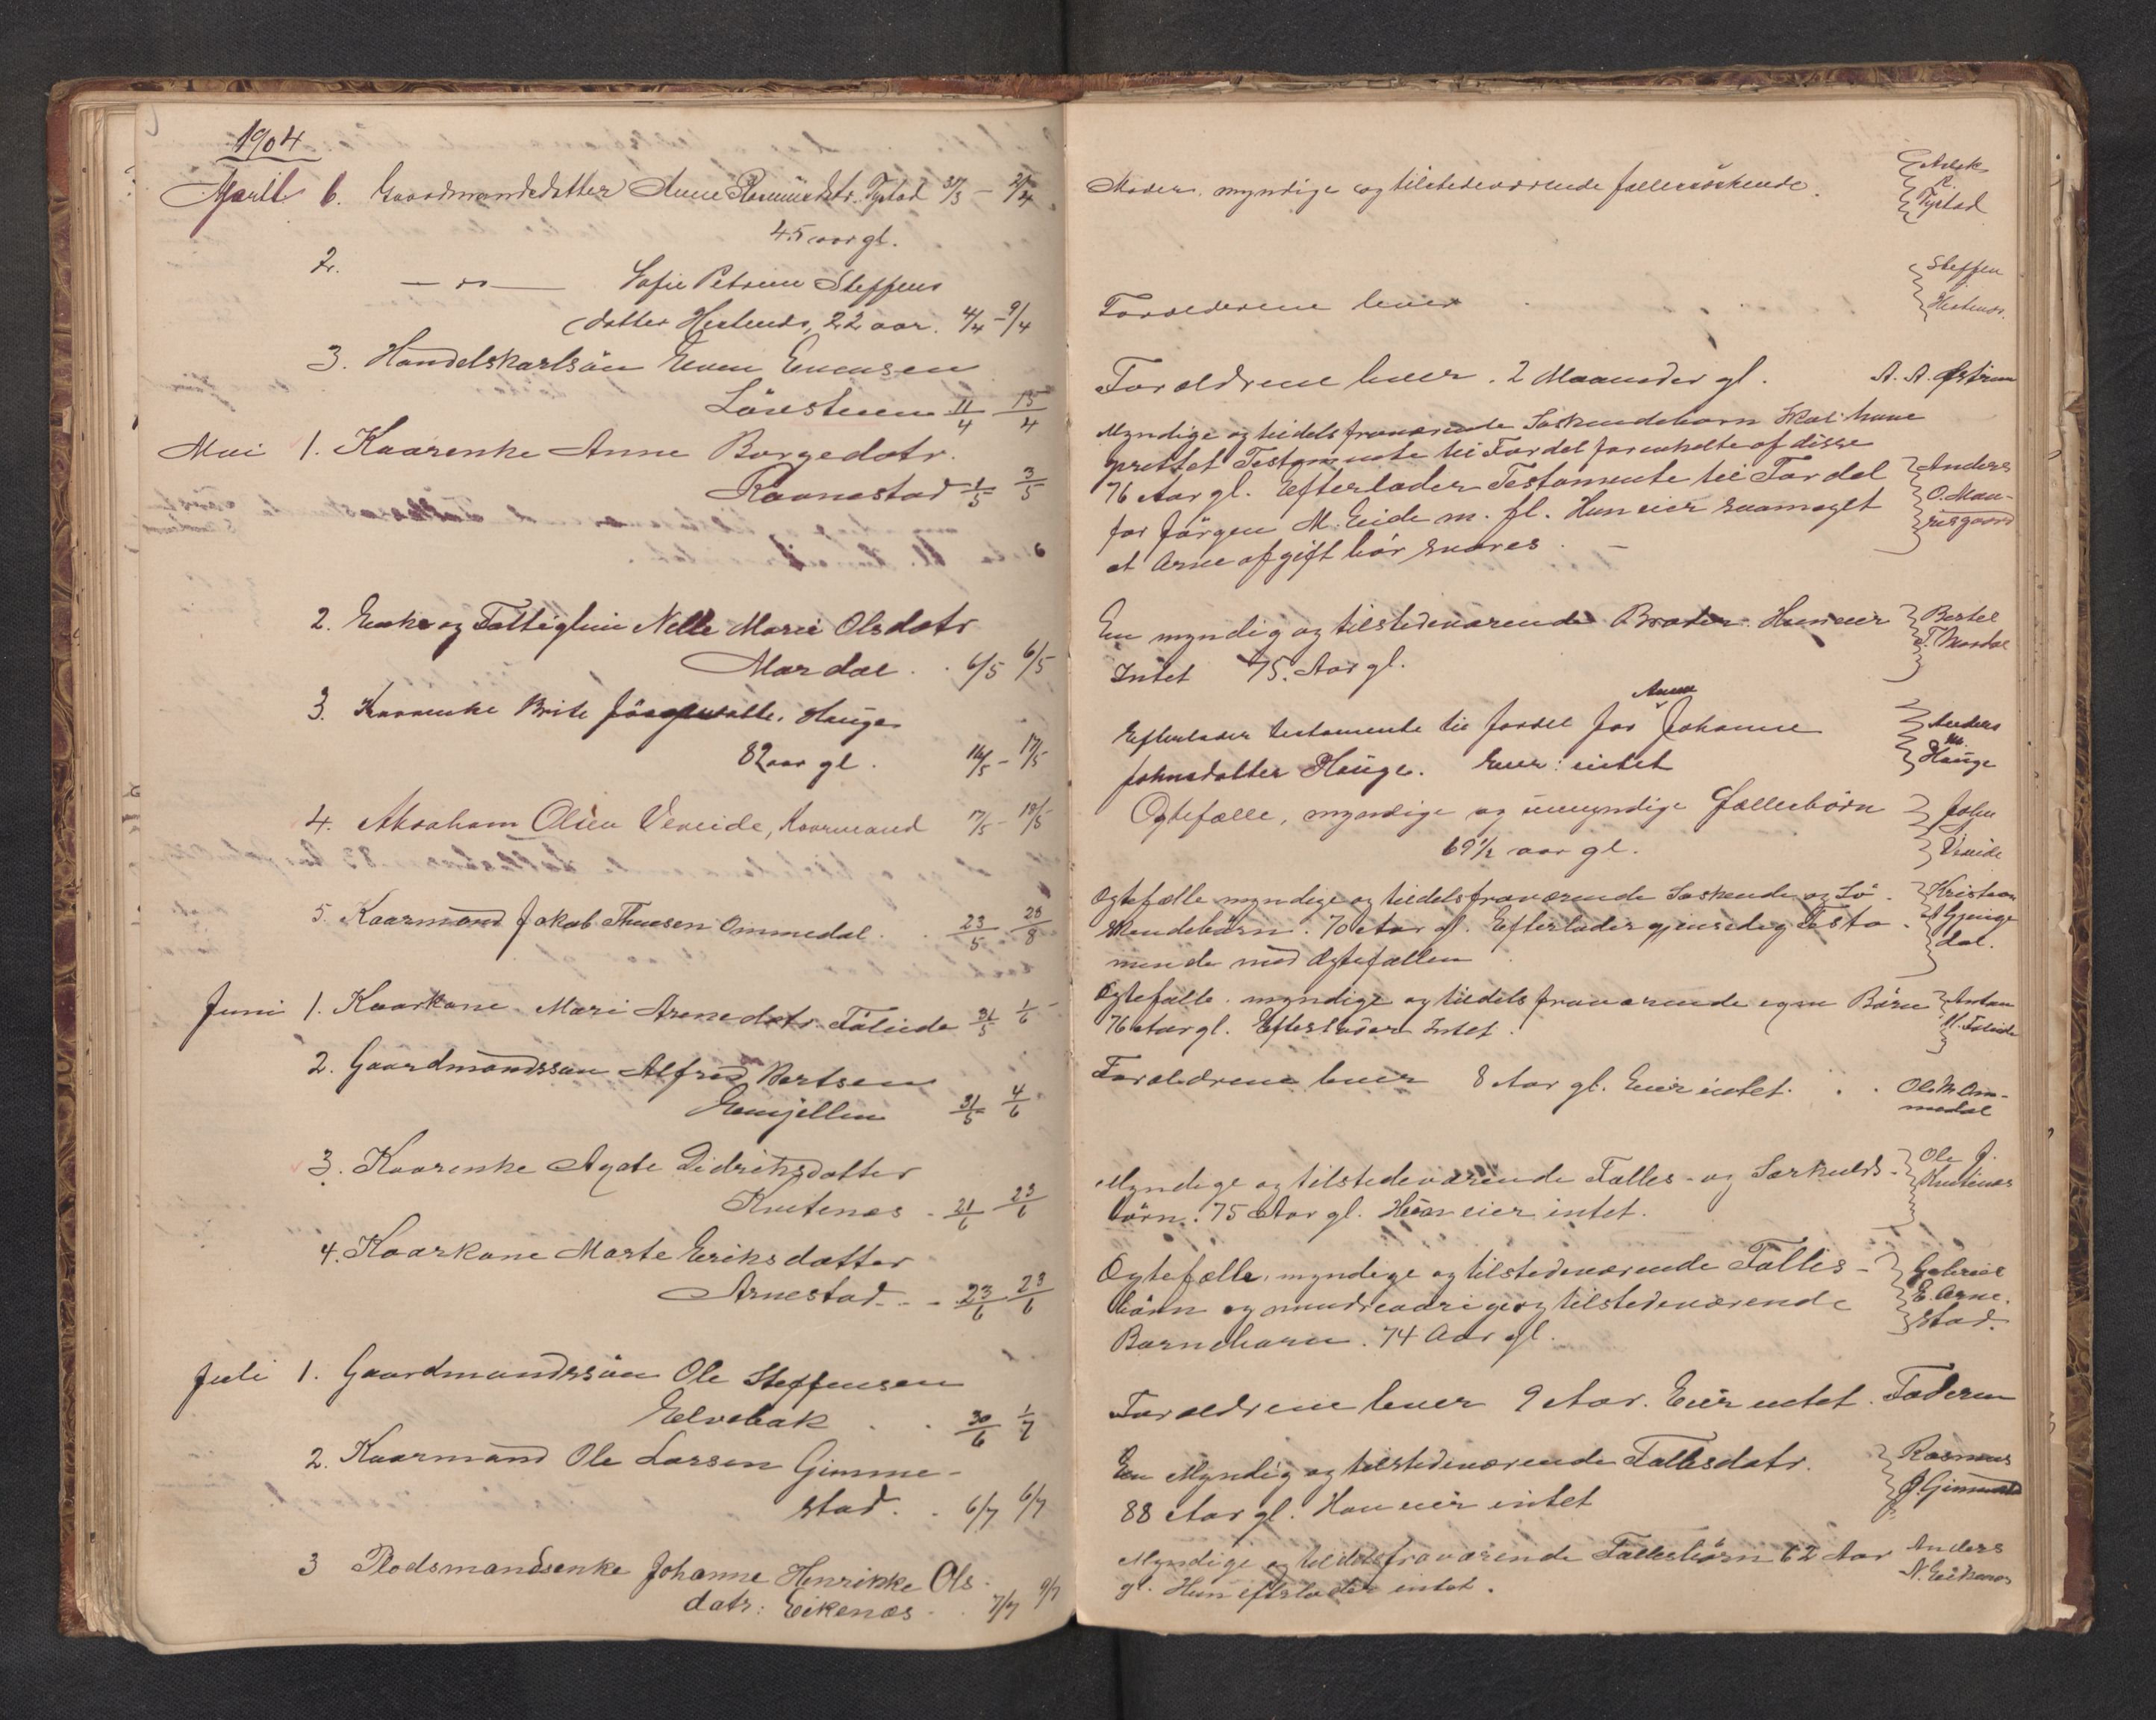 1904
April 6. Gaardmandsdatter Anne Rasmusdtr. Tystad 31/3 - 3/4
45 aar gl.
2. — " — Sofie Petrine Steffens
datter Hestenes, 22 aar. 4/4 - 9/4
3. Handelskarlsön Even Evensen
11/4 15/4
Mai 1. Kaarenke Anne Borgedatr.
Ravnestad 1/5 3/5
2. Enke og Fattiglem Nelle Marie Olsdatr
Mardal . . 6/5 6/5
3. Kaarenke Brite Hauge
82 aar gl. 14/5 - 17/5
4. Abraham Olsen Veneide, Kaarmand 17/5 - 18/5
5. Kaarmand Jakob Ommedal . . 23/5 25/8
Juni 1. Kaarkone Mari Arnedatr. 31/5 1/6
2. Gaardmandssön Alfred Bertsen
31/5 4/6
3. Kaarenke Agate Didriksdatter
Kvitenes - 21/6 23/6
4. Kaarkone Marte Eriksdatter
Arnestad . . - 23/6 23/6
Juli 1. Gaardmandssön Ole Steffensen
Elvebak . . 30/6 1/7
2. Kaarmand Ole Larsen Gimme-
stad . . 6/7 6/7
3 Plodsmandsenke Johanne Henrikke Ols-
datr: Eikenæs - . 7/7 9/7
Moder, myndige og tilstedeværende fællessöskende.
Tystad
Forældrene lever
Steffen
Hestenes.
Forældrene lever. 2 Maaneder gl. A. A.
Myndige og tildels fraværende Söskendebörn Skal have
oprettet Testamente til Fordel for enkelte af disse
76 Aar gl. Efterlader Testamente til Fordel
for Jörgen M. Eide m. fl. Hun eier saameget
at Arveafgift bör svares. -
Anders
O.
En myndig og tilstedeværende Broder. Hun eier
Intet 75 Aar gl.
Bertel
T. Mardal
Efterlader testamente til fordel for Anne Johanne
Johnsdatter Hauge. Eier: intet
Anders
M.
Hauge
Ægtefælle, myndige og umyndige fællesbörn
69 1/2 aar gl.
John
Veneide
Ægtefælle myndige og tildels fraværende Söskende og Sö-
skendebörn. 70 Aar gl. Efterlader gjensidig Testa-
mente med Ægtefællen
Kristian
A Gjenge
dal.
Ægtefælle. myndige og tildels fraværende egne Börn
76 Aar gl. Efterlader Intet.
Anton
Forældrene lever 8 Aar gl. Eier intet. . .
Ole M. Om-
medal
Myndige og tilstedeværende Fælles- og Særkulds-
börn. 75 Aar gl. Hun eier intet.
Ole J.
Kvitenes
Ægtefælle, myndige og tilstedeværende Fælles-
börn og mindreaarige og tilstedeværende
Barnebarn. 74 Aar gl.
Gabriel
E. Arne-
stad.
Forældrene lever 9 Aar. Eier intet. Faderen
En Myndig og tilstedeværende Fællesdatr.
88 Aar gl. Han eier intet
Rasmus
J. Gimmestad
Myndige og tildels fraværende Fællesbörn 62 Aar
gl. Hun efterlader intet.
Anders
N. Eikenæs